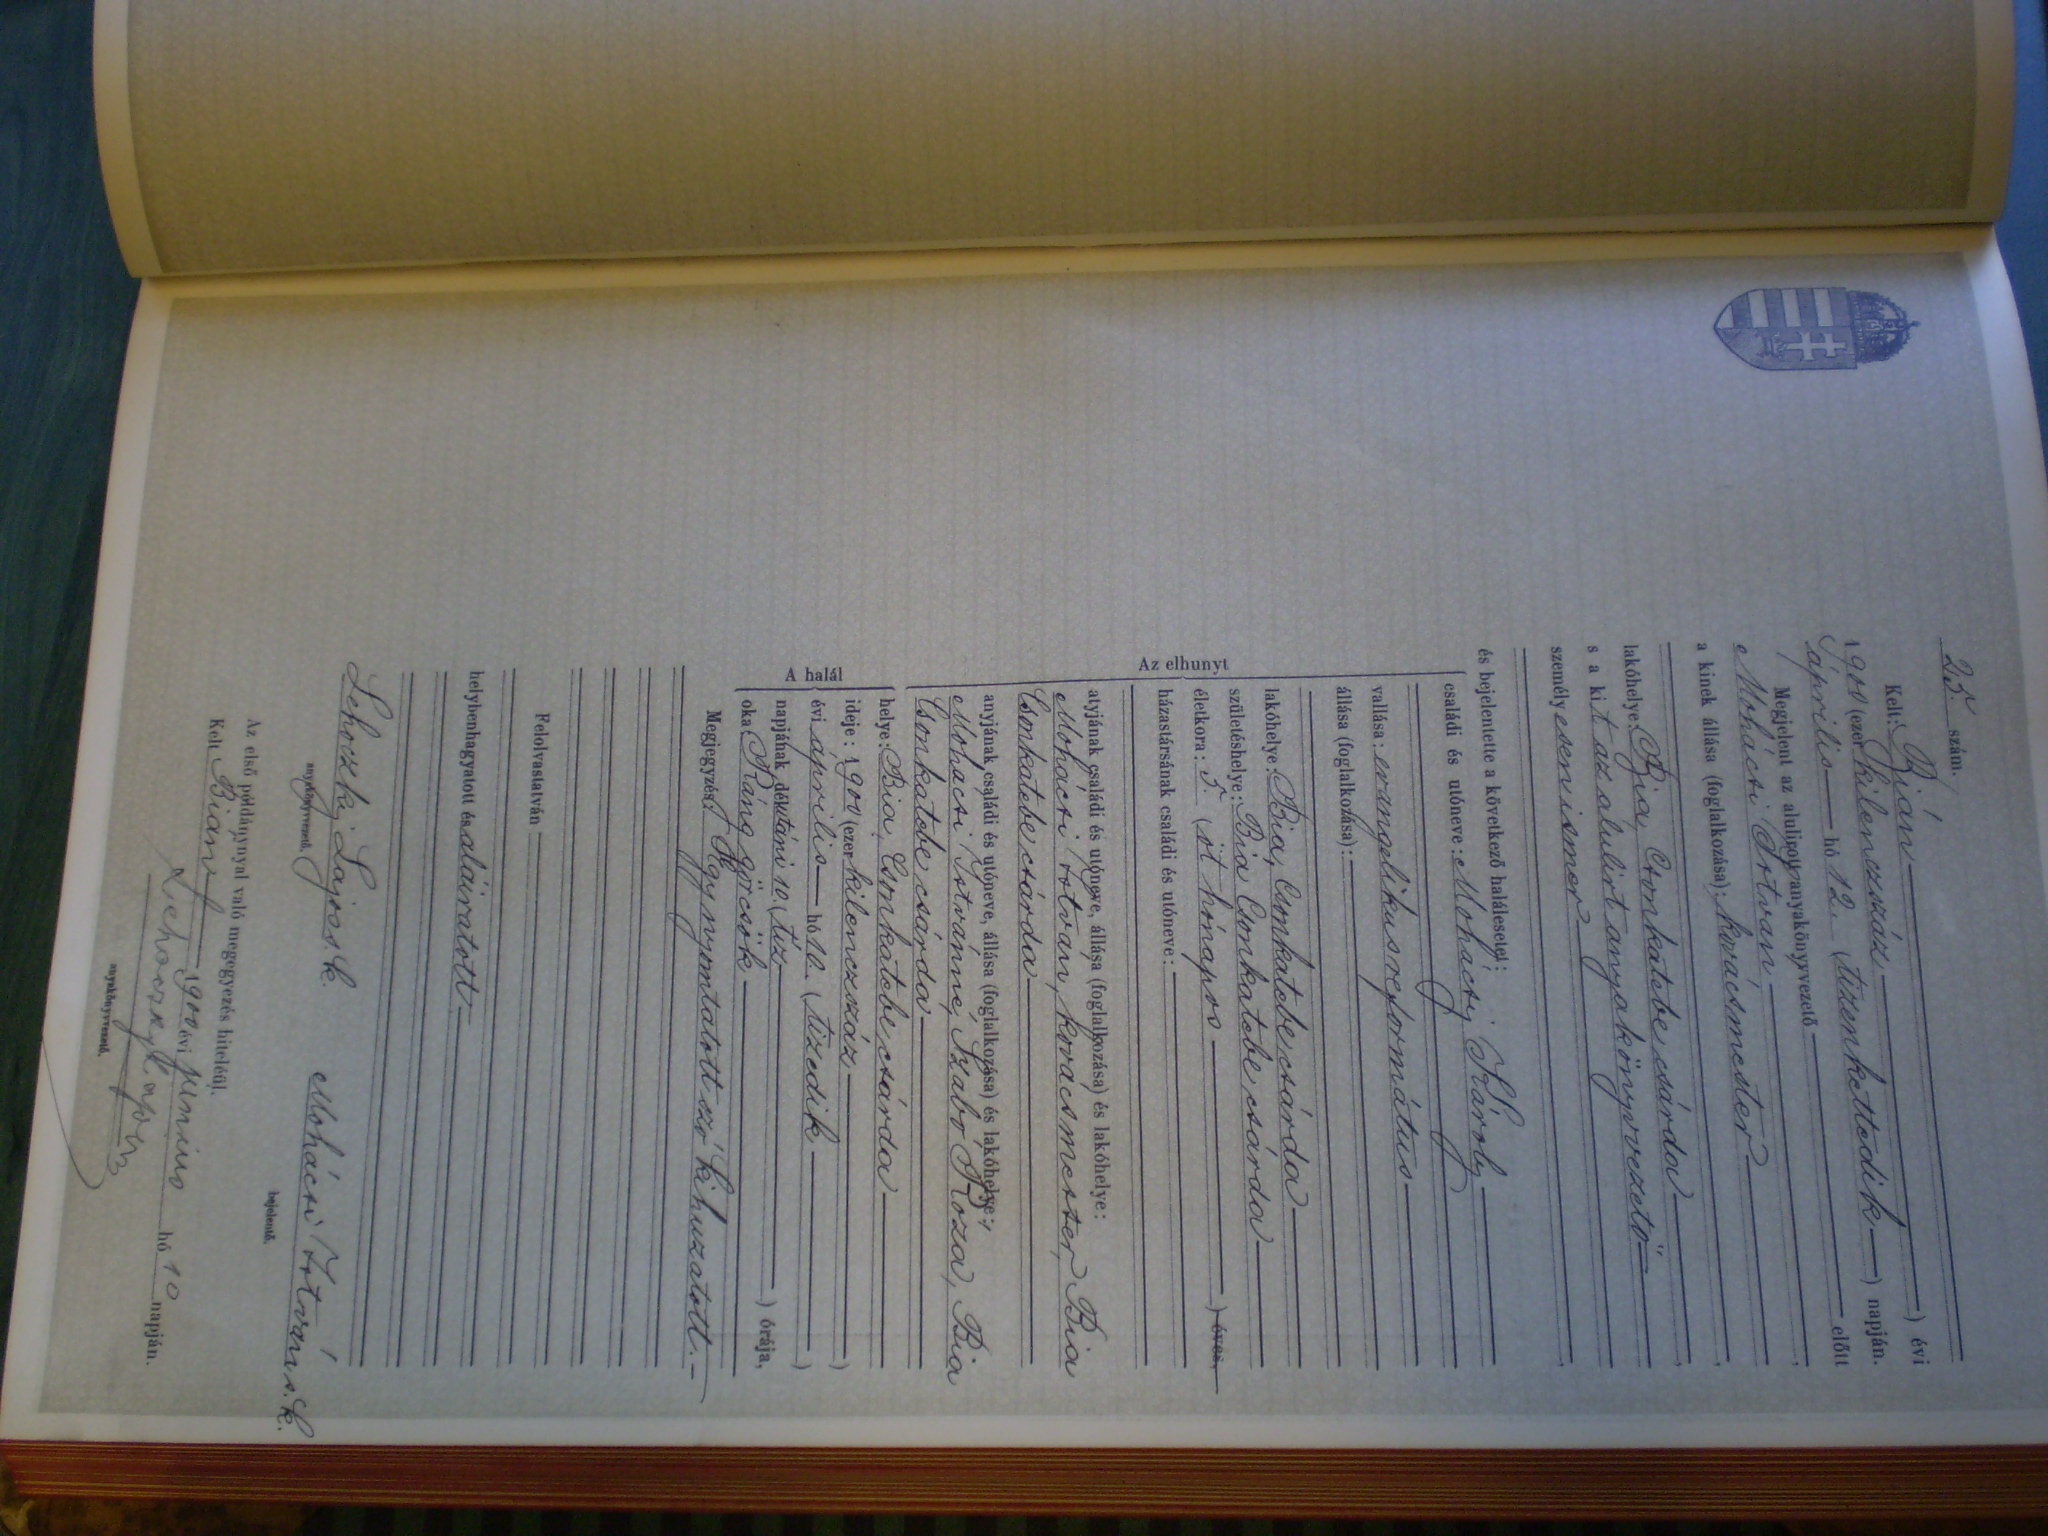 25 szám.
Kelt: Bián évi
1900 (ezer kilenczszáz ) évi
április hó 12. (tizenkettedik) napján.
Megjelent az alulirott anyakönyvvezető előtt
Mohácsi István
a kinek állása (foglalkozása): kovácsmester
lakóhelye: Bia, Csonkatebe csárda
s a kit az alulirt anyakönyvvezető
személyesen ismer
és bejelentette a következő halálesetet:
Az elhunyt
családi és utóneve: Mohácsy Károly
vallása: evangelikus református
állása (foglalkozása):
lakóhelye: Bia, Csonkatebe csárda
születéshelye: Bia Csonkatebe csárda
életkora: 5. (öt hónapos ) éves,
házastársának családi és utóneve:
atyjának családi és utóneve, állása (foglalkozása) és lakóhelye:
Mohácsi István, kovácsmester, Bia
Csonkatebe csárda
anyjának családi és utóneve, állása (foglalkozása) és lakóhelye:
Mohácsi Istvánné, Szabó Róza, Bia
Csonkatebe csárda
A halál
helye: Bia, Csonkatebe csárda
ideje: 1900 (ezer kilenczszáz )
évi április hó 10. (tizedik )
napjának délutáni 10 (tiz ) órája,
oka: Ráng görcsök
Megjegyzés: Egy nyomtatott szó kihuzatott.
Felolvastatván
helybenhagyatott és aláiratott
Lehoczky Lajos s. k. Mohácsi István s. k.
anyakönyvvezető. bejelentő.
Az első példánynyal való megegyezés hiteléül.
Kelt Bián 1900 évi junius hó 10 napján.
Lehoczky Lajos
anyakönyvvezető.